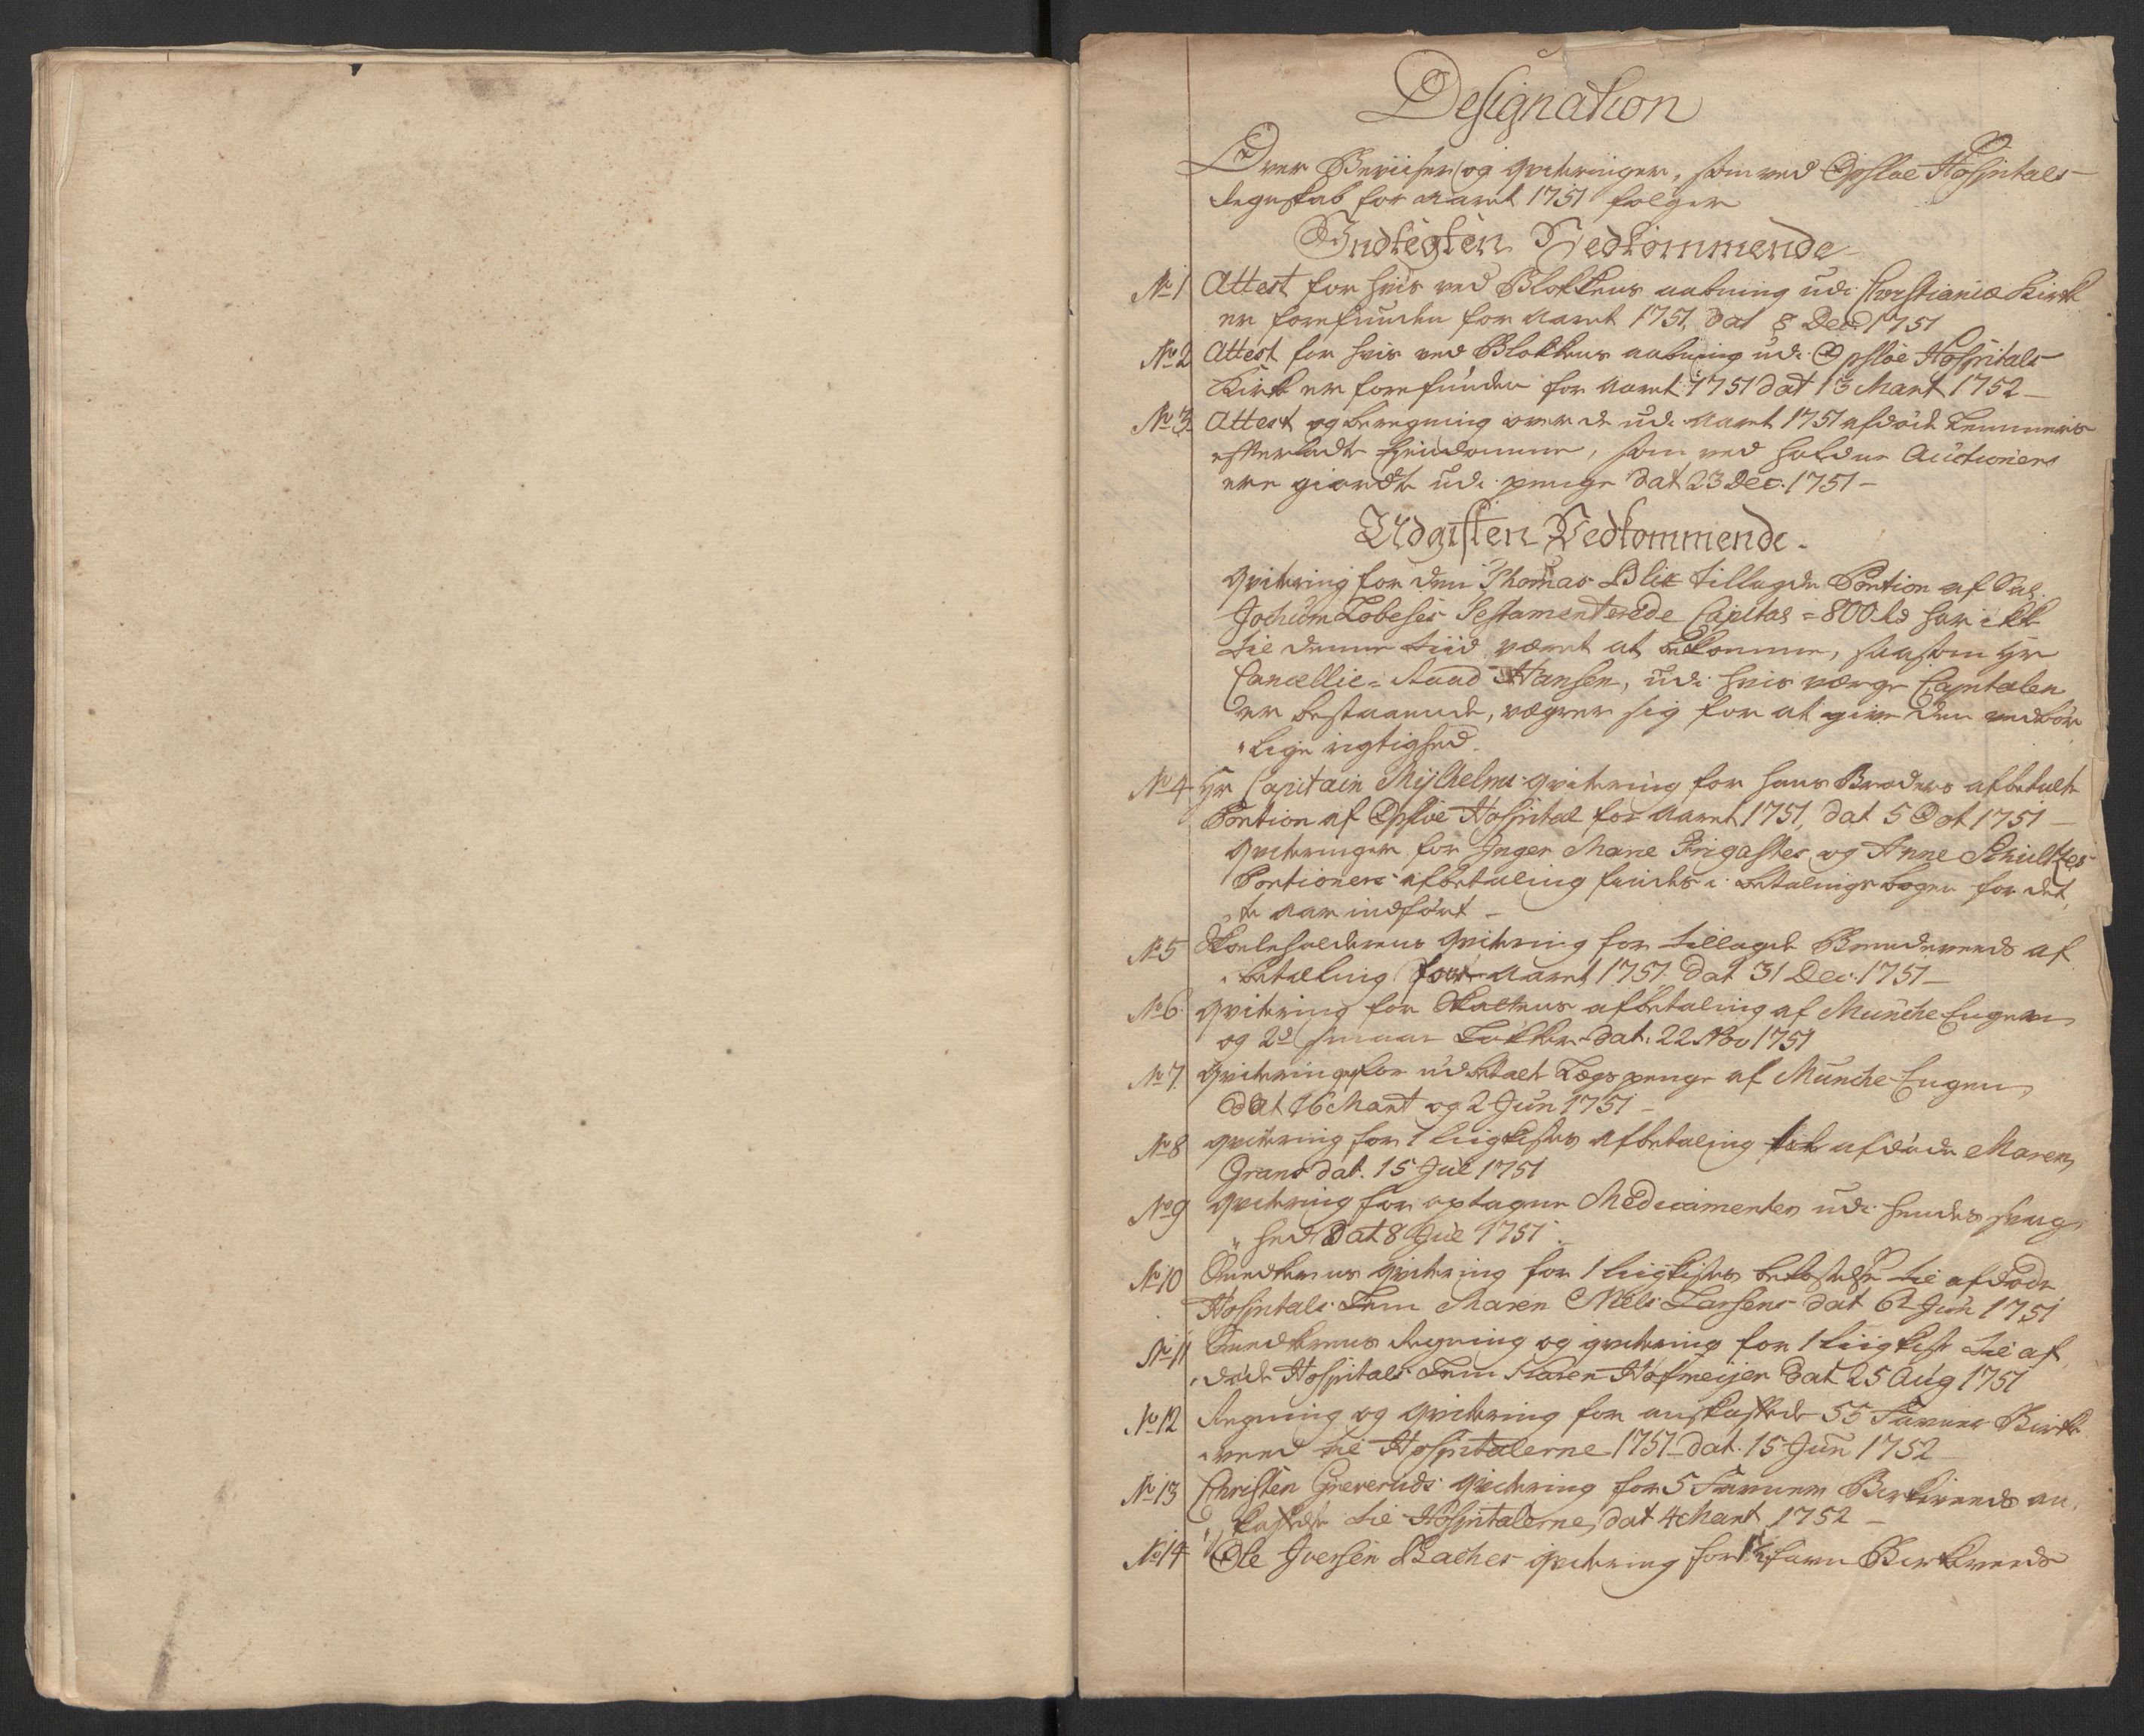 Designation
Over Beviiser og qvitteringer, som ved Opsloe Hospitals
Regnskab for aaret 1751 følger
Indtegten Vedkommende
No 1 Attest for hvis ved Blokkens aabning udi Christiania Kirke
er forefunden for Aaret 1751, dat 8 Dec 1751
No 2 Attest for hvis ved Blokkens aabning udi Opsloe Hospitals
Kirke er forefunden for Aaret 1751 dat 13 Mart 1752
No 3 Attest og beregning over de udi Aaret 1751 afdöde Lemmers
efterladte Eiendomme, som ved holdne Auctioner
ere giordte udi penge dat 23 Dec. 1751
Udgiften Vedkommende
qvitering for den Thomas Blix tillagde Portion af Sal.
Jochum Lobeses Testamenterede Capital = 800 Rd har ikke
til denne tiid været at bekomme, saasom Hr
Cancellie-Raad Hansen, udi hvis værge Capitalen
er bestaaende, vægrer sig for at give den vedbör
lige rigtighed.
No 4 Hr Capitain Mylhelms qvitering for hans Broders afbetalte
Portion af Opsloe Hospital for Aaret 1751, dat 5 Oct 1751
Qviteringer for Inger Marie Frigastes og Anne Schultzes
Portioners afbetaling findes i betalings bogen for det
te Aar indfört
No 5 Skoeleholderens qvitering for tillagde Brendeveeds af
betaling for Aaret 1751. dat 31 Dec. 1751
No 6 qvitering for Skattens afbetaling af Munche Engen
og 2de smaae Løkker dat: 22 Nov 1751
No 7 Qviteringer for udbetalt Lægs penge af Munche Engen
dat 16 Mart og 2 Jun 1751
No 8 qvitering for 1 Liigkistes afbetaling til afdöde Maren
Grans dat. 15 Jul 1751
No 9 qvitering for optagne Medicamenter udi hendes svag
hed dat 8 Jul 1751
No 10 Snedkerens qvitering for 1 Liigkistes bekostelse til afdöde
Hospitals Lem Maren Niels Larsens dat 6 Jun 1751
No 11 Snedkerens Regning og qvitering for 1 Liigkiste til af
döde Hospitals Lem Karen Hofmeijer dat 25 Aug 1751
No 12 Regning og Qvitering for anskaffede 55 Favner Birke
veed til Hospitalerne 1751 dat. 15 Jun 1752
No 13 Christen Greveruds qvitering for 5 Favner Birkeveeds an
skaffelse til Hospitalerne, dat 4 Mart 1752
No 14 Ole Iversen Baches qvitering for 1½ favn Birkeveeds